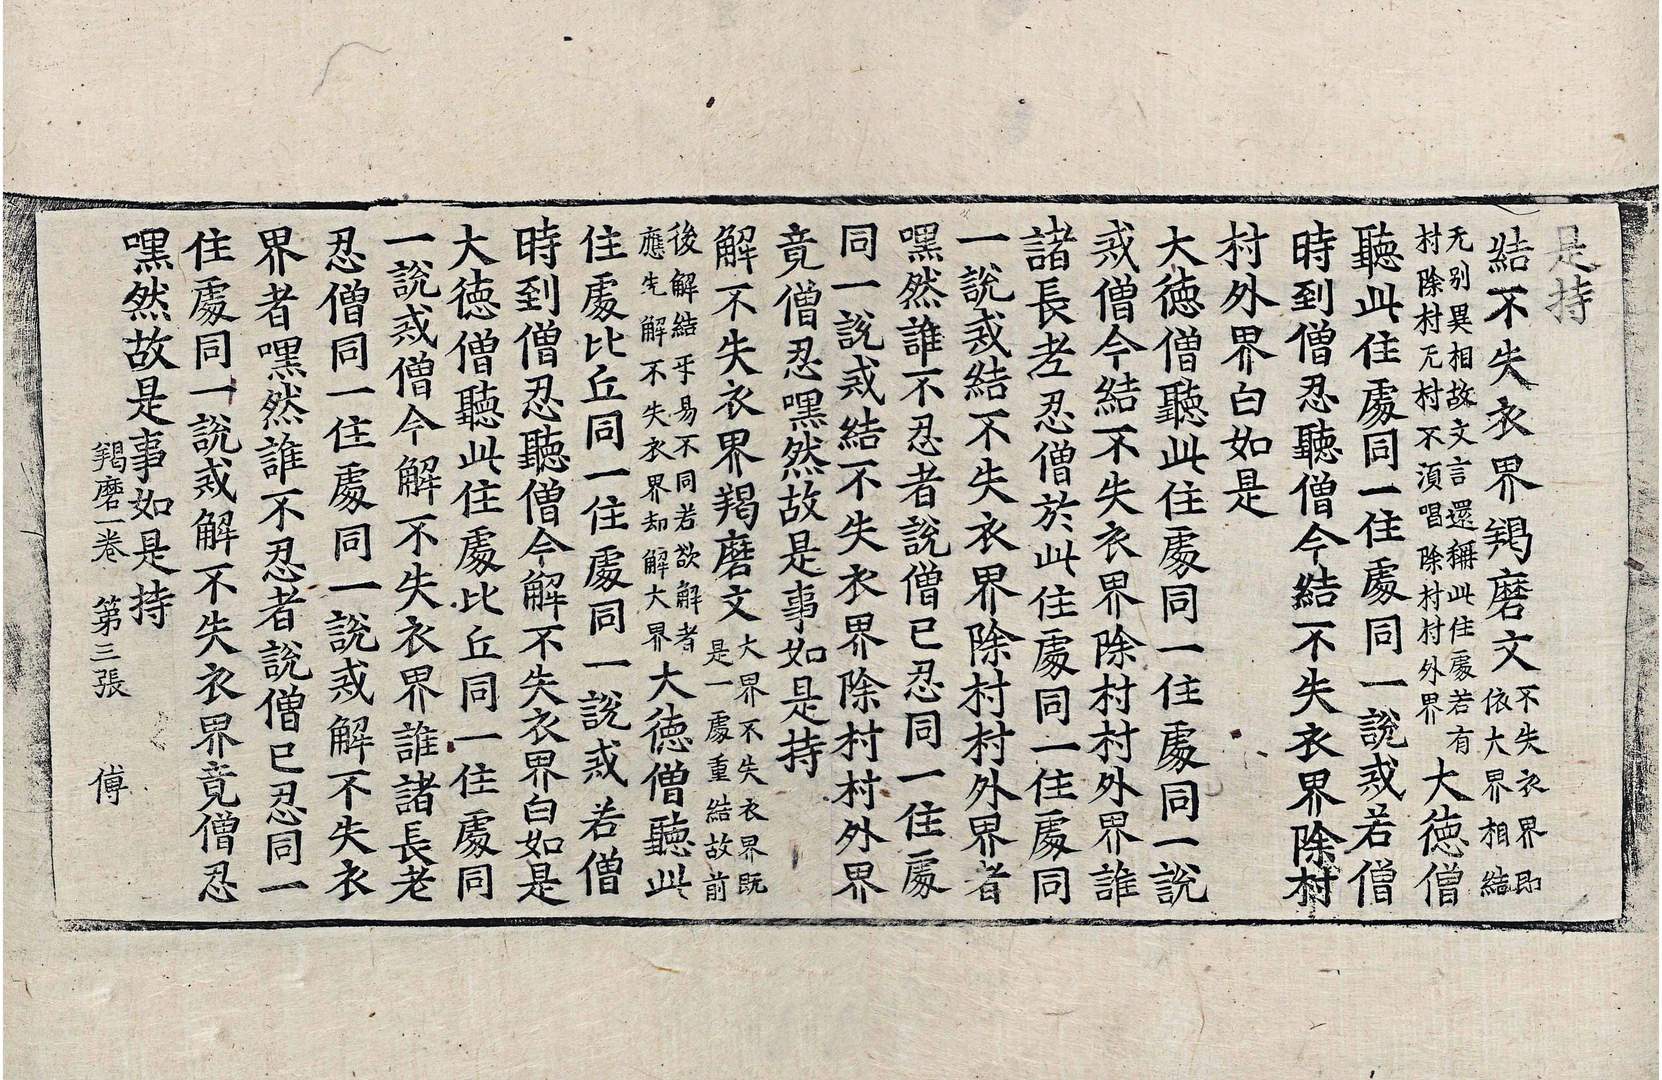 是持
結不失衣界羯磨文不失衣界即依大界相結
无别異相故文言還稱此住處若有村除村无村不湏唱除村村外界大徳僧
聽此住處同一住處同一說戒若僧
時到僧忍聽僧今結不失衣界除村
村外界白如是
大徳僧聽此住處同一住處同一說
戒僧今結不失衣界除村村外界誰
諸長老忍僧於此住處同一住處同
一說戒結不失衣界除村村外界者
嘿然誰不忍者說僧已忍同一住處
同一說戒結不失衣界除村村外界
竟僧忍嘿然故是事如是持
解不失衣界羯磨文大界不失衣界既是一處重結故前
後解結乎易不同若欲解者應先解不失衣界却解大界大徳僧聽此
住處比丘同一住處同一說戒若僧
時到僧忍聽僧今解不失衣界白如是
大徳僧聽此住處比丘同一住處同
一說戒僧今解不失衣界誰諸長老
忍僧同一住處同一說戒解不失衣
界者嘿然誰不忍者說僧已忍同一
住處同一說戒解不失衣界竟僧忍
嘿然故是事如是持
羯磨一卷 第三張 傅